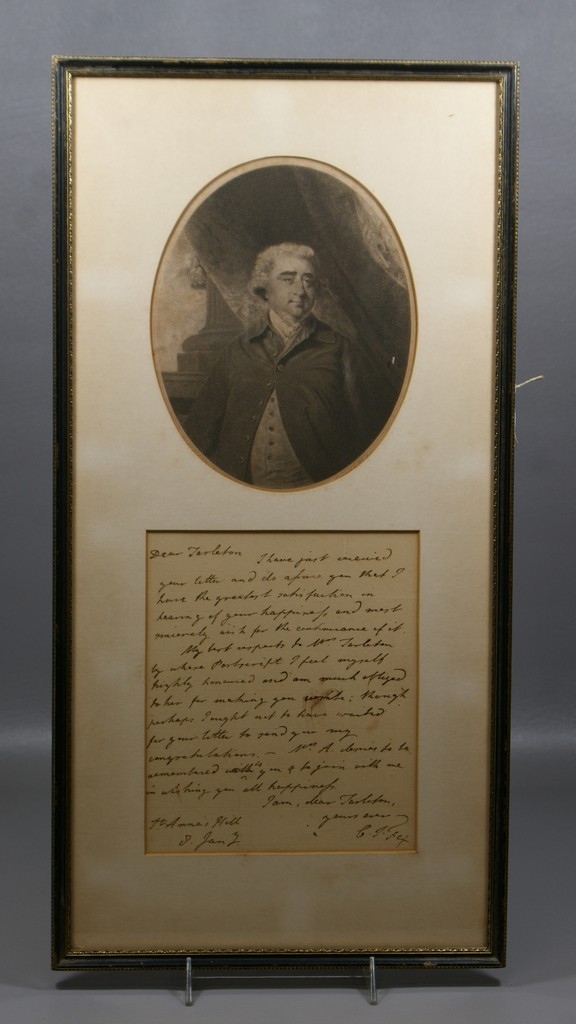 Dear Tarleton I have just received
your letter and do assure you that I
have the greatest satisfaction in
hearing of your happiness and most
sincerely wish for the continuance of it
My best respects to Mrs Tarleton
by whose Postscript I feel myself
highly honoured and am much obliged
to her for making you write; though
perhaps I ought not to have waited
for your letter to send you my
congratulations. – Mrs A. desires to be
remembered to you & to join with me
in wishing you all happiness
I am, dear Tarleton,
yours ever
St Anne's Hill
8. Jany
C. J. Fox